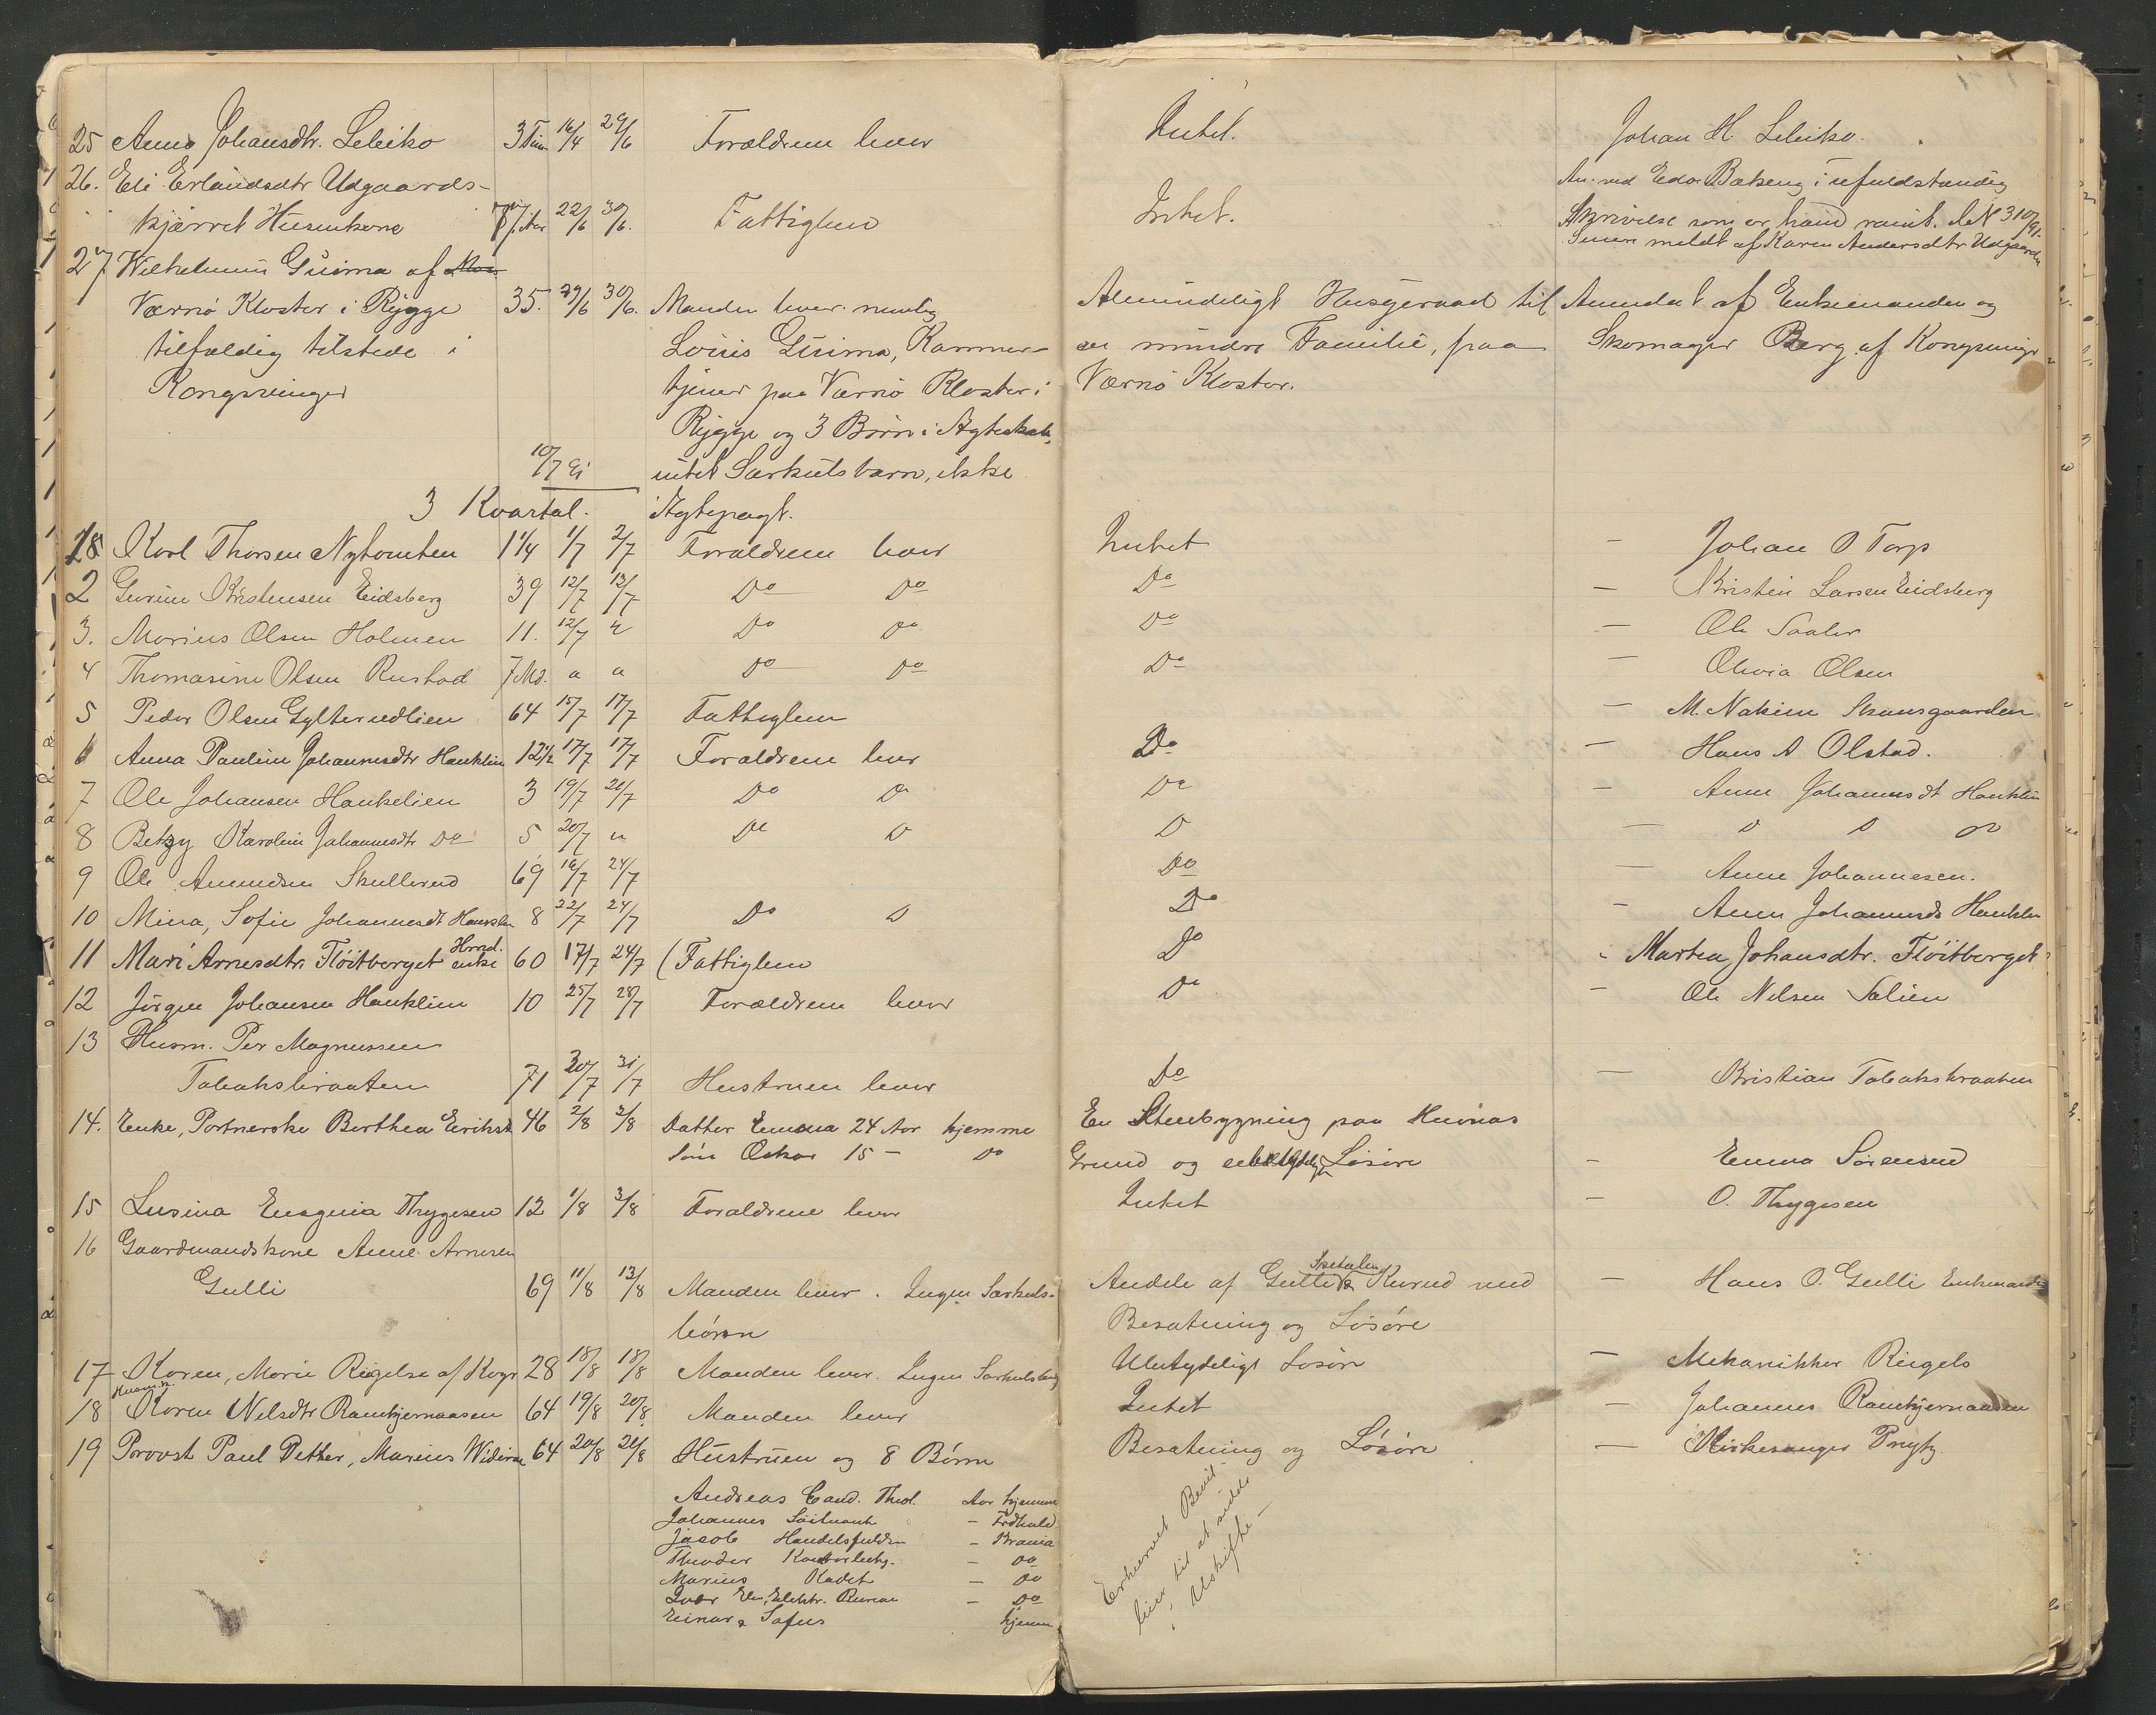 25 Anne Johansdtr. Lebiko 3 Tim 16/4 29/6 Forældrene lever Intet. Johan H. Lebiko.
26. Eli Erlandsdtr Udgaards- An. ved Edv. Bakeng i ufuldstændig
kjærret Husmkone 22/6 30/6. Fattiglem Intet. Skrivelse som er
Senere meldt af Karen Andersdtr Udgaards
27 Wilhelmine Guima af
Værnø Kloster i Rygge 35. 29/6 30/6. Manden lever nemlig Almindeligt Husgeraad til Anmeldt af Enkemanden og
tilfældig tilstede i Louis Guima, Kammer- en mindre Familie, paa Skomager Berg af Kongsvinger
Kongsvinger tjener paa Værnø Kloster i Værnø Kloster.
Rygge og 3 Børn i Ægteskab,
10/7 91 intet Særkulsbarn, ikke
3 Kvartal. Ægtepagt.
28 Karl Thorsen Nytomten 1 1/4 1/7 2/7 Forældrene lever Intet — Johan O Torp
2 Gurine Kristensen Eidsberg 39 12/7 13/7 Do Do Do — Kristen Larsen Eidsberg
3. Marius Olsen Holmen 11. 12/7 " Do Do Do — Ole Saaler
4 Thomasine Olsen Rustad 7 Md. " " Do Do Do — Olivia Olsen
5 Peder Olsen Gylterudlien 64 15/7 17/7 Fattiglem — M. Nakim Skansgaarden
6 Anna Pauline Johannesdtr Hanklien 12 1/2 17/7 17/7 Forældrene lever Do — Hans A Olstad.
7 Ole Johansen Hankelien 3 19/7 20/7 Do Do Do — Anne Johannesdt Hanklien
8 Betzy Karoline Johannesdtr Do 5 20/7 " Do D D — D D Do
9 Ole Amundsen Skullerud 69 16/7 24/7 Do — Anne Johannesen.
10 Mina, Sofie Johannesdt Hanklien 8 22/7 24/7 Do D Do — Anne Johannesds Hanklien
11 Mari Arnesdtr. Fløitberget Hmd. enke 60 17/7 24/7 (Fattiglem Do Martea Johansdtr. Fløitberget
12 Jörgen Johansen Hanklien 10 25/7 28/7 Forældrene lever Do — Ole Nilsen Salien
13 Husm. Per Magnussen
Tobaksbraaten 71 30/7 31/7 Hustruen lever Do — Kristian Tobaksbraaten
14. Enke, Portnerske Berthea Eriksd 46 2/8 2/8 Datter Emma 24 Aar hjemme En Stuebygning paa Husnas
Søn Oskar 15 — Do Grund og Løsøre — Emma Sørensen
15 Lusina Eugenia Thygesen 12 1/8 3/8 Forældrene lever Intet — O. Thygesen
16 Gaardmandskone Anne Arnesen
Gulli 69 11/8 13/8 Manden lever. Ingen Særkuls- Andele af Gulli Kurud med — Hans O. Gulli Enkemand
børn Besætning og Løsøre
17 Karen, Marie Riegelse af Kvgr 28 18/8 18/8 Manden lever. Ingen Særkulsbørn Ubetydeligt Løsøre — Mekanikker Riegels
18 Husm.k. Karen Nilsdtr Ramkjernaasen 64 19/8 20/8 Manden lever Intet — Johannes Ramkjernaasen
19 Provst Paul Petter, Marius Widerøe 64 20/8 21/8 Hustruen og 8 Børn Besætning og Løsøre — Kirkesanger Prytz
Andreas Cand. Theol. Aar hjemme
Johannes Løitnant — Frdhald
Jacob Handelsfuldm — Krania
Theodor Kontorbetj. — Do
Marius Kadet — Do
Ivar Elektr. Bureau — Do
Einar & Sofus hjemme
Erhvervet Bevil-
ling til at sidde
i Uskifte —